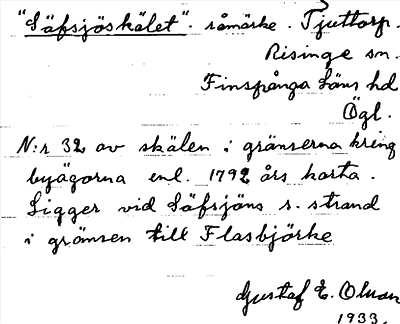 "Säfsjöskälet". råmärke. Tjuttorp.
Risinge sn.
Finspånga läns hd
Ögl.
N:r 32 av skälen i gränserna kring
byägorna enl. 1792 års karta.
Ligger vid Säfsjöns s. strand
i gränsen till Flasbjörke
Gustaf E. Olsson
1933.